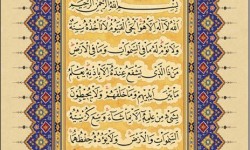 بِسْمِ اللَّهِ الرَّحْمَٰنِ الرَّحِيمِ
اللَّهُ لَا إِلَٰهَ إِلَّا هُوَ الْحَيُّ الْقَيُّومُ لَا تَأْخُذُهُ سِنَةٌ
وَلَا نَوْمٌ لَهُ مَا فِي السَّمَوَاتِ وَمَا فِي الْأَرْضِ
مَنْ ذَا الَّذِي يَشْفَعُ عِنْدَهُ إِلَّا بِإِذْنِهِ يَعْلَمُ
مَا بَيْنَ أَيْدِيهِمْ وَمَا خَلْفَهُمْ وَلَا يُحِيطُونَ
بِشَيْءٍ مِنْ عِلْمِهِ إِلَّا بِمَا شَاءَ وَسِعَ كُرْسِيُّهُ
السَّمَوَاتِ وَالْأَرْضَ وَلَا يَئُودُهُ حِفْظُهُمَا